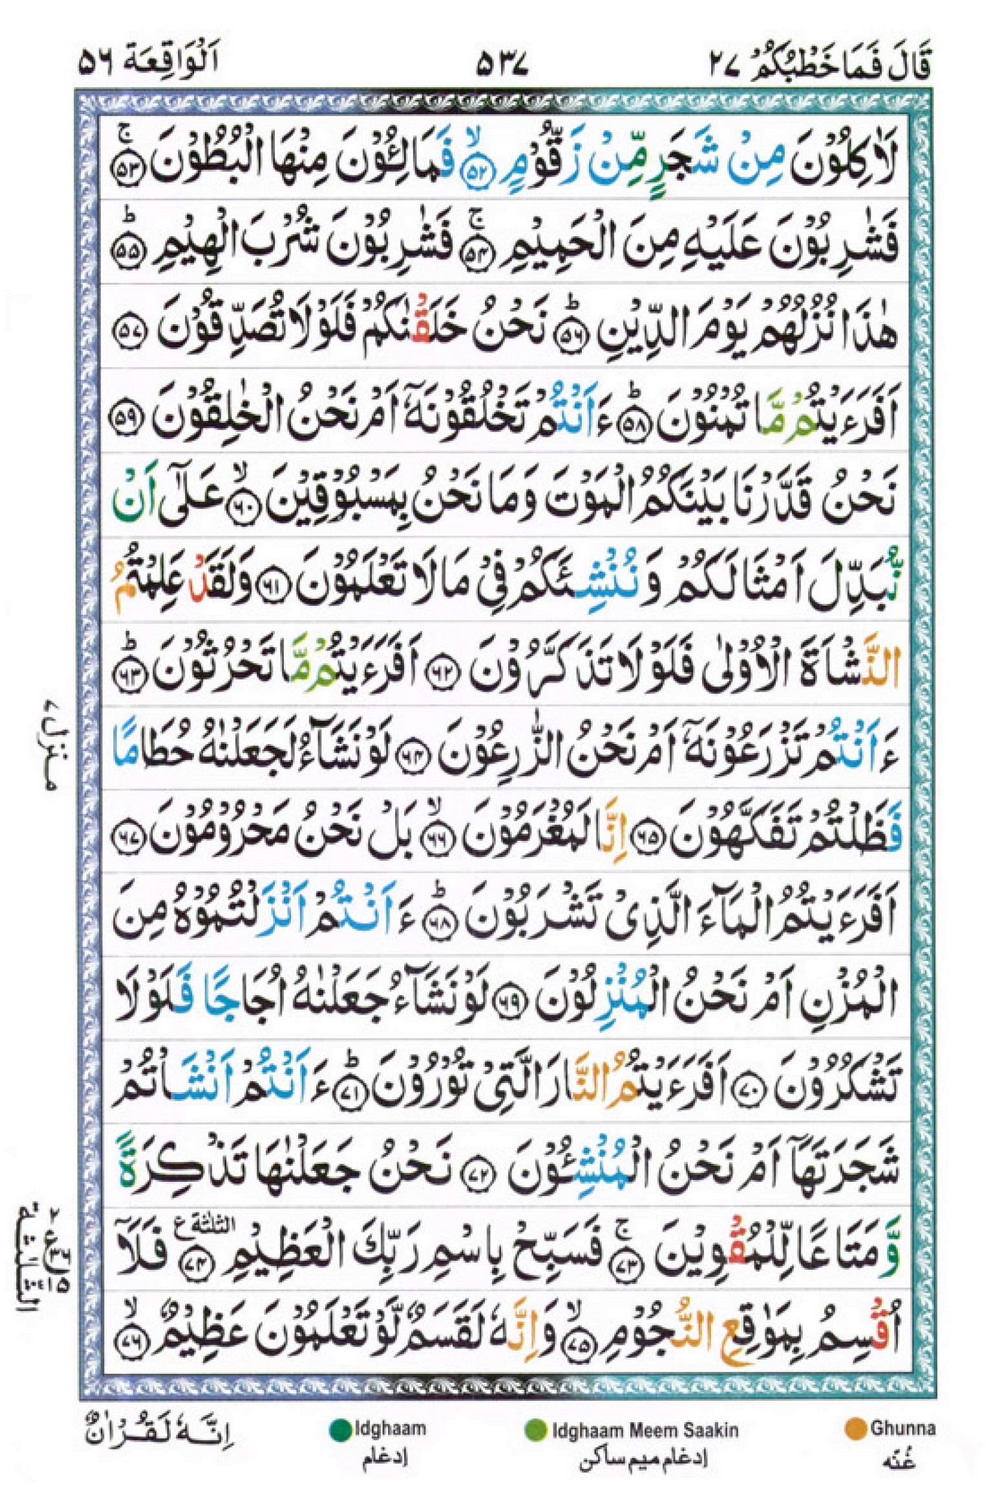 قَالَ فَمَا خَطْبُكُمْ ۲۷ ۵۳۷ اَلْوَاقِعَة ۵۶
لَاٰكِلُوْنَ مِنْ شَجَرٍ مِّنْ زَقُّوْمٍ ۙ﴿۵۲﴾ فَمَالِـُٔوْنَ مِنْهَا الْبُطُوْنَ ۚ﴿۵۳﴾
فَشٰرِبُوْنَ عَلَيْهِ مِنَ الْحَمِيْمِ ۚ﴿۵۴﴾ فَشٰرِبُوْنَ شُرْبَ الْهِيْمِ ؕ﴿۵۵﴾
هٰذَا نُزُلُهُمْ يَوْمَ الدِّيْنِ ؕ﴿۵۶﴾ نَحْنُ خَلَقْنٰكُمْ فَلَوْلَا تُصَدِّقُوْنَ ﴿۵۷﴾
اَفَرَءَيْتُمْ مَّا تُمْنُوْنَ ؕ﴿۵۸﴾ ءَاَنْتُمْ تَخْلُقُوْنَهٗۤ اَمْ نَحْنُ الْخٰلِقُوْنَ ﴿۵۹﴾
نَحْنُ قَدَّرْنَا بَيْنَكُمُ الْمَوْتَ وَمَا نَحْنُ بِمَسْبُوْقِيْنَ ۙ﴿۶۰﴾ عَلٰٓى اَنْ
نُّبَدِّلَ اَمْثَالَكُمْ وَنُنْشِئَكُمْ فِيْ مَا لَا تَعْلَمُوْنَ ﴿۶۱﴾ وَلَقَدْ عَلِمْتُمُ
النَّشْاَةَ الْاُوْلٰى فَلَوْلَا تَذَكَّرُوْنَ ﴿۶۲﴾ اَفَرَءَيْتُمْ مَّا تَحْرُثُوْنَ ؕ﴿۶۳﴾
ءَاَنْتُمْ تَزْرَعُوْنَهٗۤ اَمْ نَحْنُ الزّٰرِعُوْنَ ﴿۶۴﴾ لَوْ نَشَآءُ لَجَعَلْنٰهُ حُطَامًا
فَظَلْتُمْ تَفَكَّهُوْنَ ﴿۶۵﴾ اِنَّا لَمُغْرَمُوْنَ ۙ﴿۶۶﴾ بَلْ نَحْنُ مَحْرُوْمُوْنَ ﴿۶۷﴾
اَفَرَءَيْتُمُ الْمَآءَ الَّذِيْ تَشْرَبُوْنَ ؕ﴿۶۸﴾ ءَاَنْتُمْ اَنْزَلْتُمُوْهُ مِنَ
الْمُزْنِ اَمْ نَحْنُ الْمُنْزِلُوْنَ ﴿۶۹﴾ لَوْ نَشَآءُ جَعَلْنٰهُ اُجَاجًا فَلَوْلَا
تَشْكُرُوْنَ ﴿۷۰﴾ اَفَرَءَيْتُمُ النَّارَ الَّتِيْ تُوْرُوْنَ ؕ﴿۷۱﴾ ءَاَنْتُمْ اَنْشَاْتُمْ
شَجَرَتَهَاۤ اَمْ نَحْنُ الْمُنْشِـُٔوْنَ ﴿۷۲﴾ نَحْنُ جَعَلْنٰهَا تَذْكِرَةً
وَّمَتَاعًا لِّلْمُقْوِيْنَ ۚ﴿۷۳﴾ فَسَبِّحْ بِاسْمِ رَبِّكَ الْعَظِيْمِ الثلثة ع ﴿۷۴﴾ فَلَاۤ
اُقْسِمُ بِمَوٰقِعِ النُّجُوْمِ ۙ﴿۷۵﴾ وَاِنَّهٗ لَقَسَمٌ لَّوْ تَعْلَمُوْنَ عَظِيْمٌ ۙ﴿۷۶﴾
منزل ۷
الثلٰثة
Ghunna
غُنّه
Idghaam Meem Saakin
إدغام ميم ساكن
Idghaam
إدغام
اِنَّهٗ لَقُرْاٰنٌ